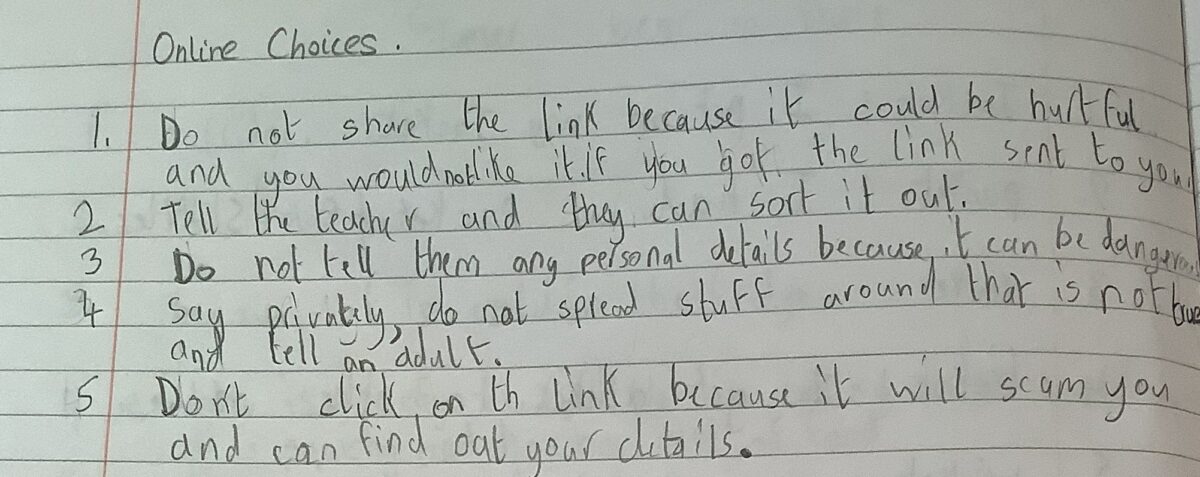 Online Choices.
1. Do not share the link because it could be hurtful
and you would not like it if you got the link sent to you.
2 Tell the teacher and they can sort it out.
3 Do not tell them any personal details because it can be dangerous
4 Say privately, do not spread stuff around that is not true
and tell an adult.
5 Don't click on th link because it will scam you
and can find out your details.